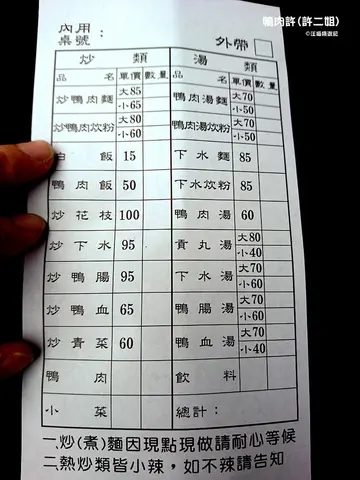 鴨肉許(許二姐)
©汪喵頻遊記
內用:
桌號
外帶
炒 類 湯 類
品名 單價 數量 品名 單價 數量
炒鴨肉麵 大85 小65 鴨肉湯麵 大70 小50
炒鴨肉炊粉 大80 小60 鴨肉湯炊粉 大70 小50
白飯 15 下水麵 85
鴨肉飯 50 下水炊粉 85
炒花枝 100 鴨肉湯 60
炒下水 95 貢丸湯 大80 小40
炒鴨腸 95 下水湯 大70 小60
炒鴨血 65 鴨腸湯 大70 小60
炒青菜 60 鴨血湯 大70 小40
鴨肉 飲料
小菜 總計:
一.炒(煮)麵因現點現做請耐心等候
二.熱炒類皆小辣,如不辣請告知